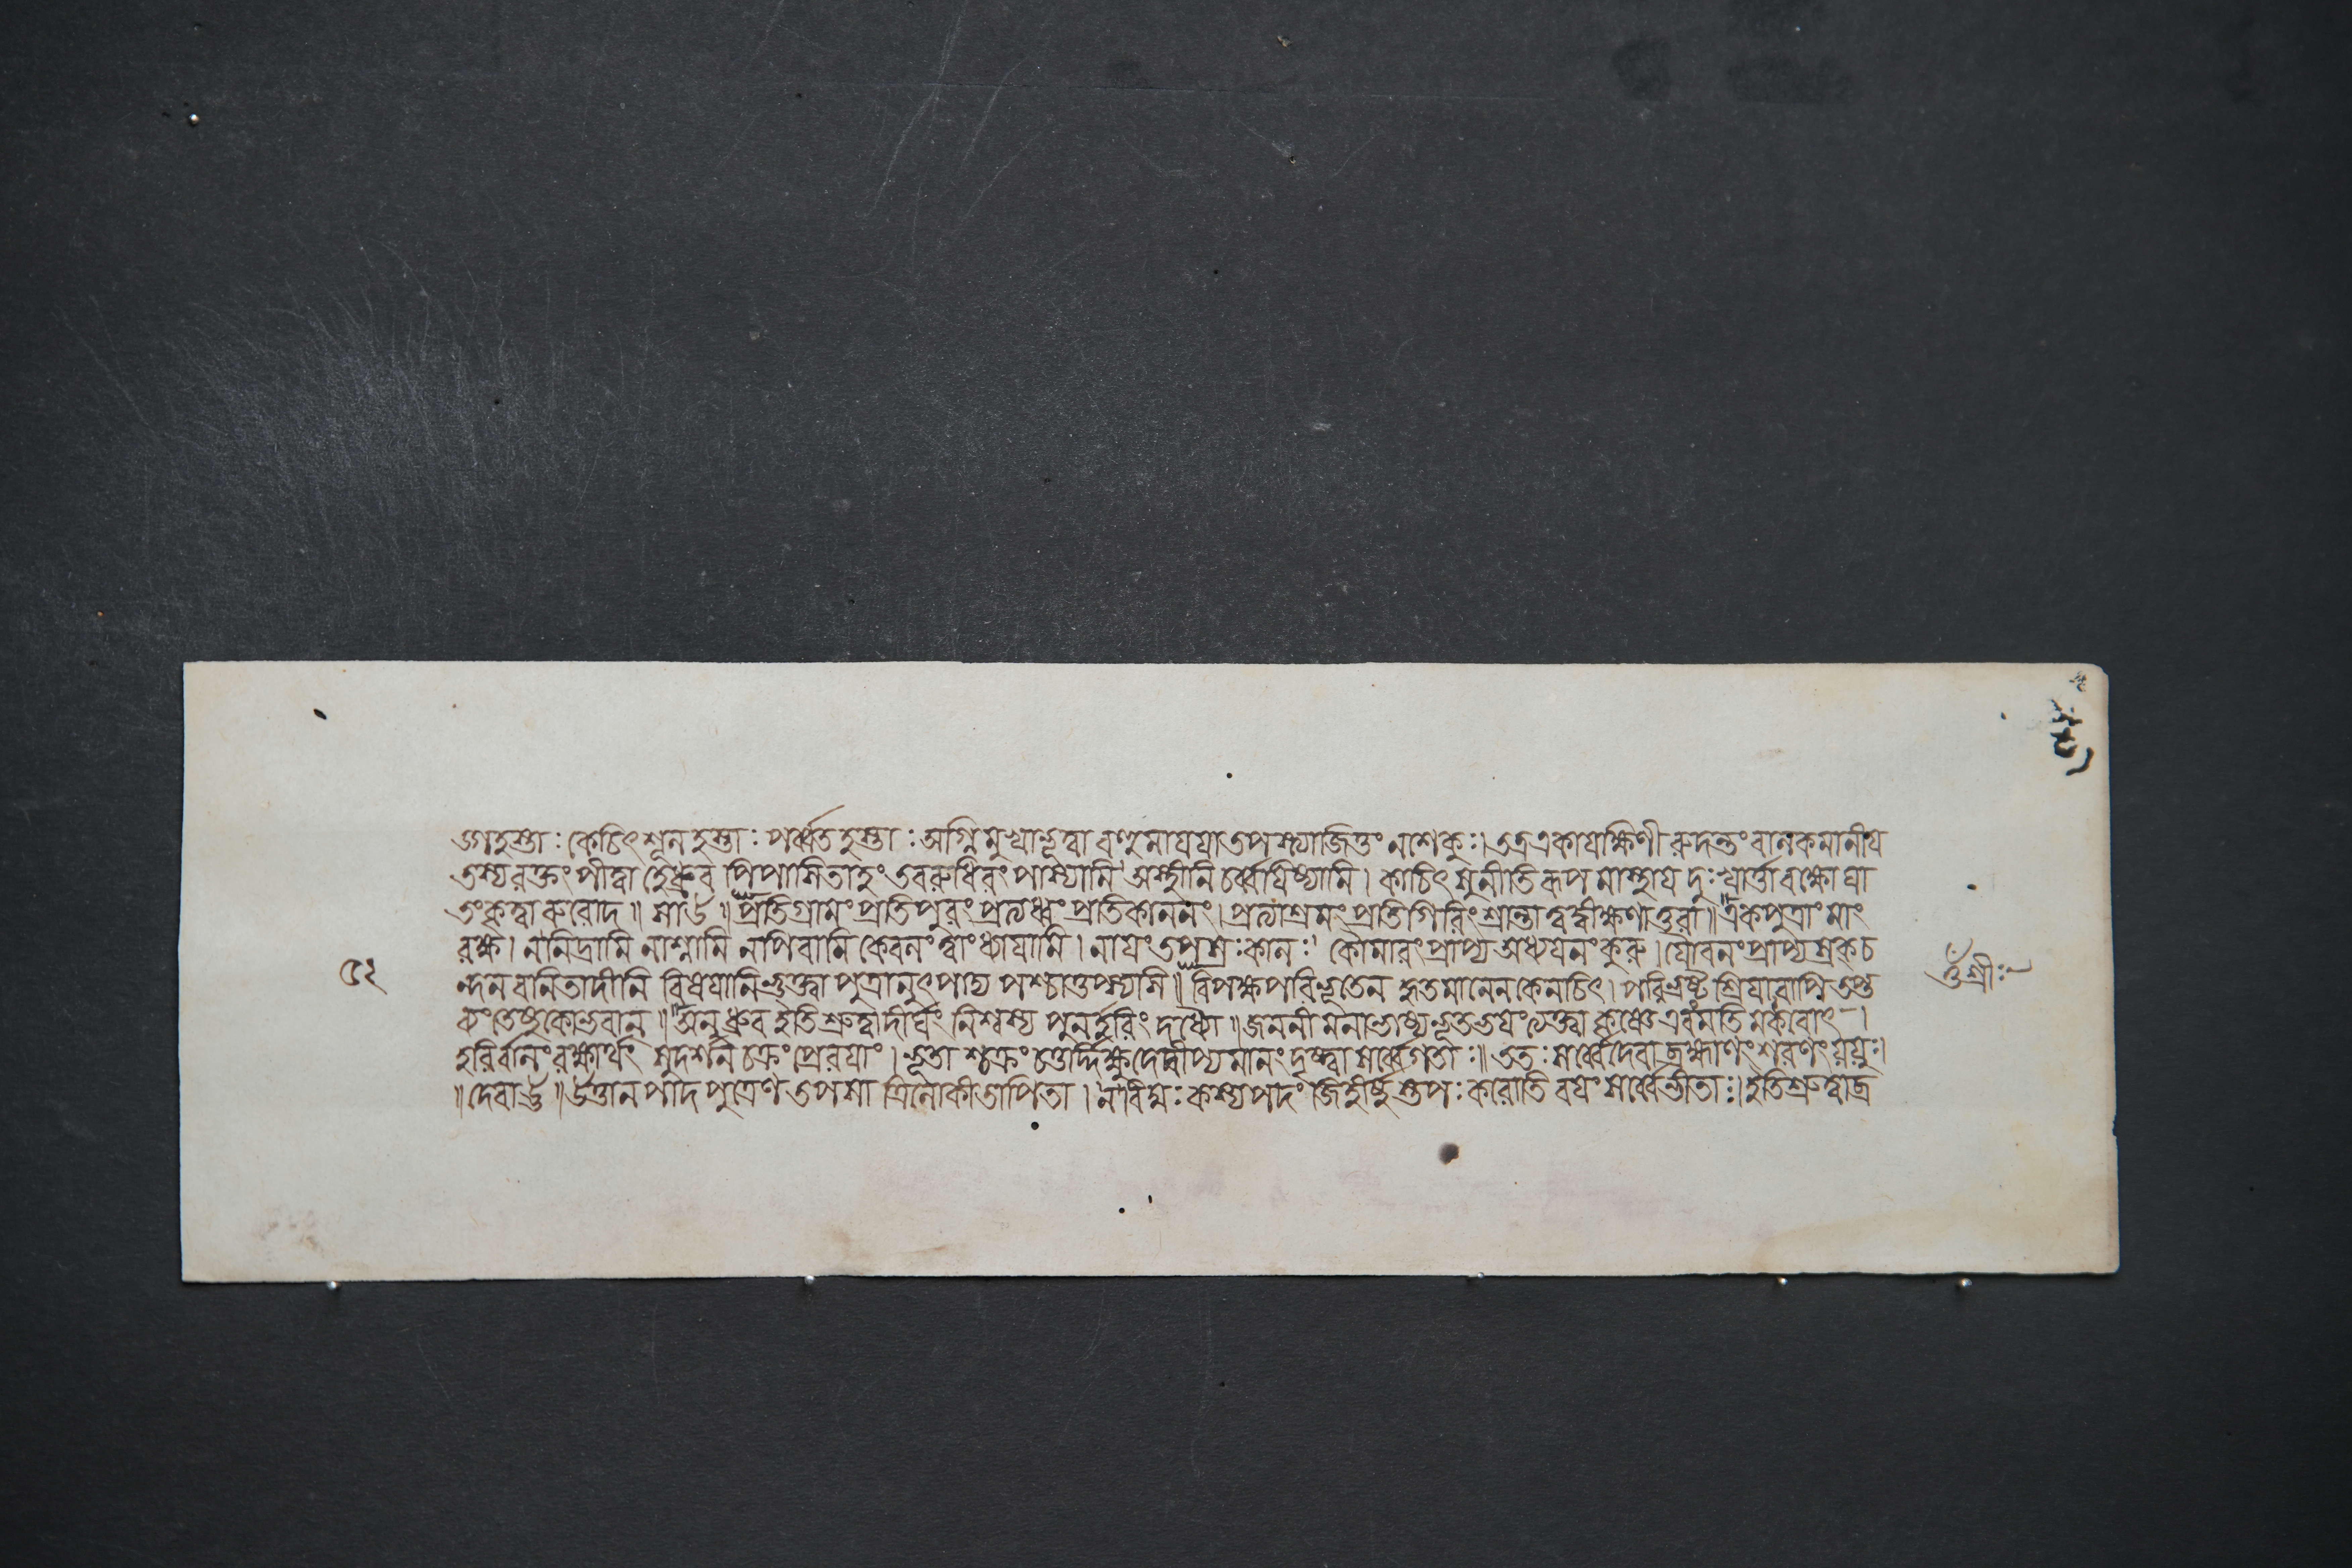 ঙ্গহস্তাঃ কেচিৎ শূলহস্তাঃ পর্ব্বতহস্তাঃ অগ্নিমুখাভূত্বা বহুমাযযাতপস্যাজিত্তং নশেকুঃ। তত্র একাযক্ষিণী রুদন্তং বালকমানীয
তস্যরক্তং পীত্বা হেধ্রুব পিপাসিতাহং তবরুধিরং পাস্যামি অস্থীনি চর্ব্বযিষ্যামি। কাচিৎ সুনীতিরূপমাস্থায দুঃখার্ত্তা বক্ষোঘা
তংকৃত্বা রুরোদ॥ সাউ॥ প্রতিগ্রামং প্রতিপুরং প্রত্যধ্বং প্রতিকাননং। প্রত্যাশ্রমং প্রতিগিরিং শ্রান্তা ত্বদ্বীক্ষণাতুরা॥ একপুত্রাং মাং
রক্ষ। ননিদ্রামি নাশ্নামি নপিবামি কেবলং ত্বাং ধ্যাযামি। নাযং তপসঃ কালঃ। কৌমারং প্রাপ্য অধ্যযনং কুরু। যৌবনং প্রাপ্য স্রকচ
৫২
ন্দন বনিতাদীনি বিষযানিভুক্ত্বা পুত্রানুৎপাদ্য পশ্চাত্তপস্যসি॥ বিপক্ষপরিভূতেন হৃতমানেন কেনচিৎ। পরিভ্রষ্ট শ্রিযাবাপি তপ্ত
ওঁশ্রীঃ
কংতেষুকোভবান্॥ অনুধ্রুব ইতিশ্রুত্বা দীর্ঘং নিশ্বস্য পুনর্হরিং দধ্যৌ॥ জননীমনাভাষ্যভূতভযং ত্যক্ত্বা এবংমতি
হরির্বালং রক্ষার্থং সুদর্শনচক্রং প্রেরযাং। ভূতা শ্চক্রং চতুর্দিক্ষু দেদীপ্যমানং দৃষ্ট্বা সর্ব্বেগতাঃ॥ ততঃ সর্ব্বেদেবা ব্রহ্মাণং শরণং যযুঃ।
॥দেবাউ॥ উত্তানপাদপুত্রেণ তপসা ত্রিলোকীতাপিতা। নবিদ্মঃ কস্যপদং জিহীর্ষুস্তপঃ করোতি বযং সর্ব্বেভীতাঃ। ইতিশ্রুত্বাব্র